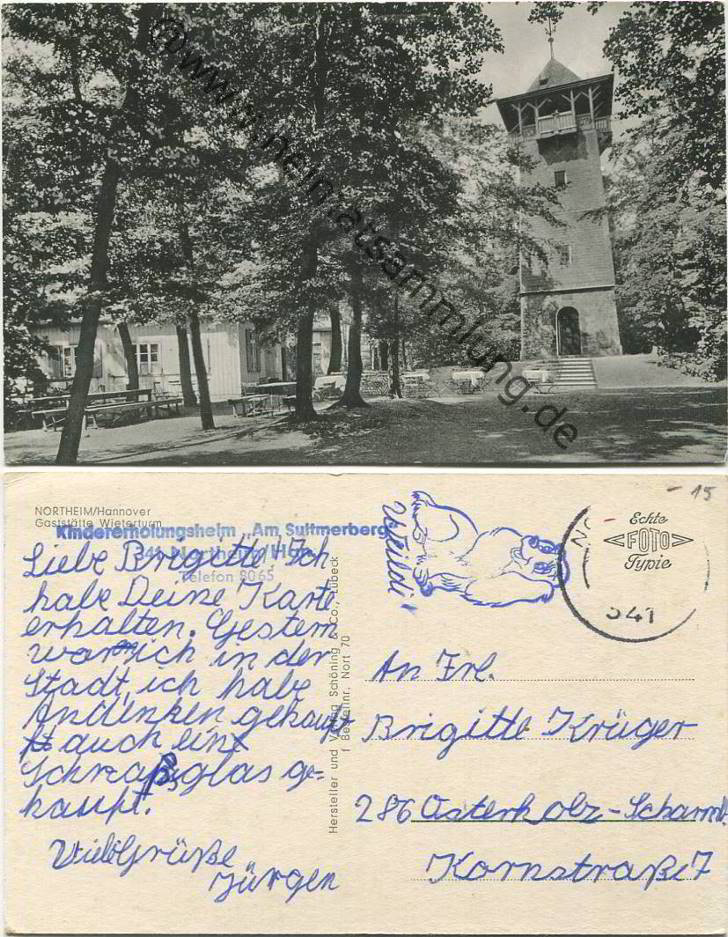 www.heimatsammlung.de
NORTHEIM/Hannover
Gaststätte Wieterturm
Kindererholungsheim „Am Sultmerberg
341 Northeim/Han.
Telefon 8065
Liebe Brigitte, Ich
habe Deine Karte
erhalten. Gestern
war ich in der
Stadt, ich habe
Andenken gekauf
ft auch ein
glas ge-
kauft.
Viele Grüße
Jürgen
Hersteller und Verlag Schöning & Co., Lübeck
f Bestellnr. Nort 70
- 15
Echte
<FOTO>
Typie
NO
341
An Frl.
Brigitte Krüger
286 Osterholz-Scharmb.
Kornstraße 7